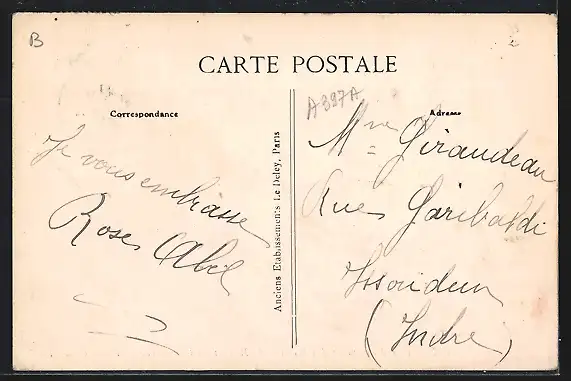 B
CARTE POSTALE
A397A
Correspondance
Adresse
Je vous embrasse
Rose Abel
Anciens Etablissements Le Deley, Paris
Mme Giraudeau
Rue Garibaldi
Issoudun
(Indre)